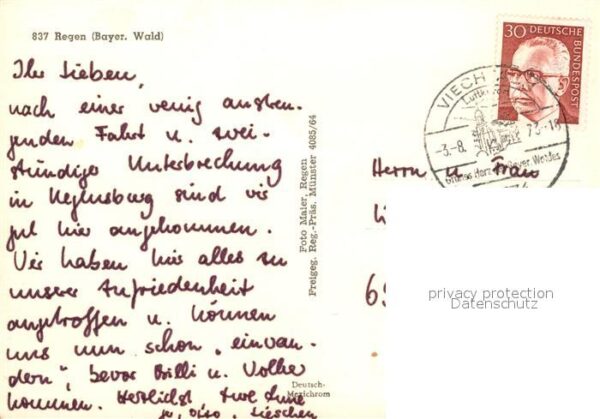 837 Regen (Bayer. Wald)
Ihr Lieben,
nach einer wenig anstren-
genden Fahrt u. zwei-
stündiger Unterbrechung
in Regensburg sind wir
gut hier angekommen.
Wir haben hier alles zu
unserer Zufriedenheit
angetroffen u. können
uns nun schon „einwan-
dern", bevor Billi u. Volker
kommen. Herzlichst, Eure
Foto Maier, Regen
Freigeg. Reg.-Präs. Münster 4085/64
Deutsch-
Mexichrom
30 DEUTSCHE
BUNDESPOST
VIECH
-3.-8. 73-18
Grünes Herz des Bayer. Waldes
Herrn u. Frau
privacy protection
Datenschutz